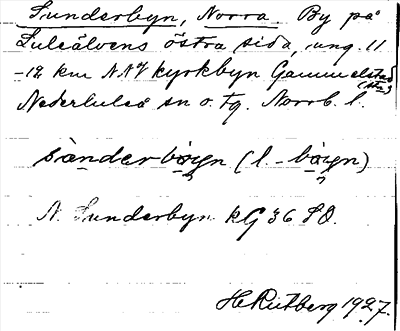 Sunderbyn, Norra. By på
Luleälvens östra sida, ung. 11
-12 km N.NV kyrkbyn Gammelstad
(stn)
Nederluleå sn o. tg. Norrb. l.
sànderböyn (l. -böyn)
N. Sunderbyn kG 36 SO.
H Rutberg 1927.